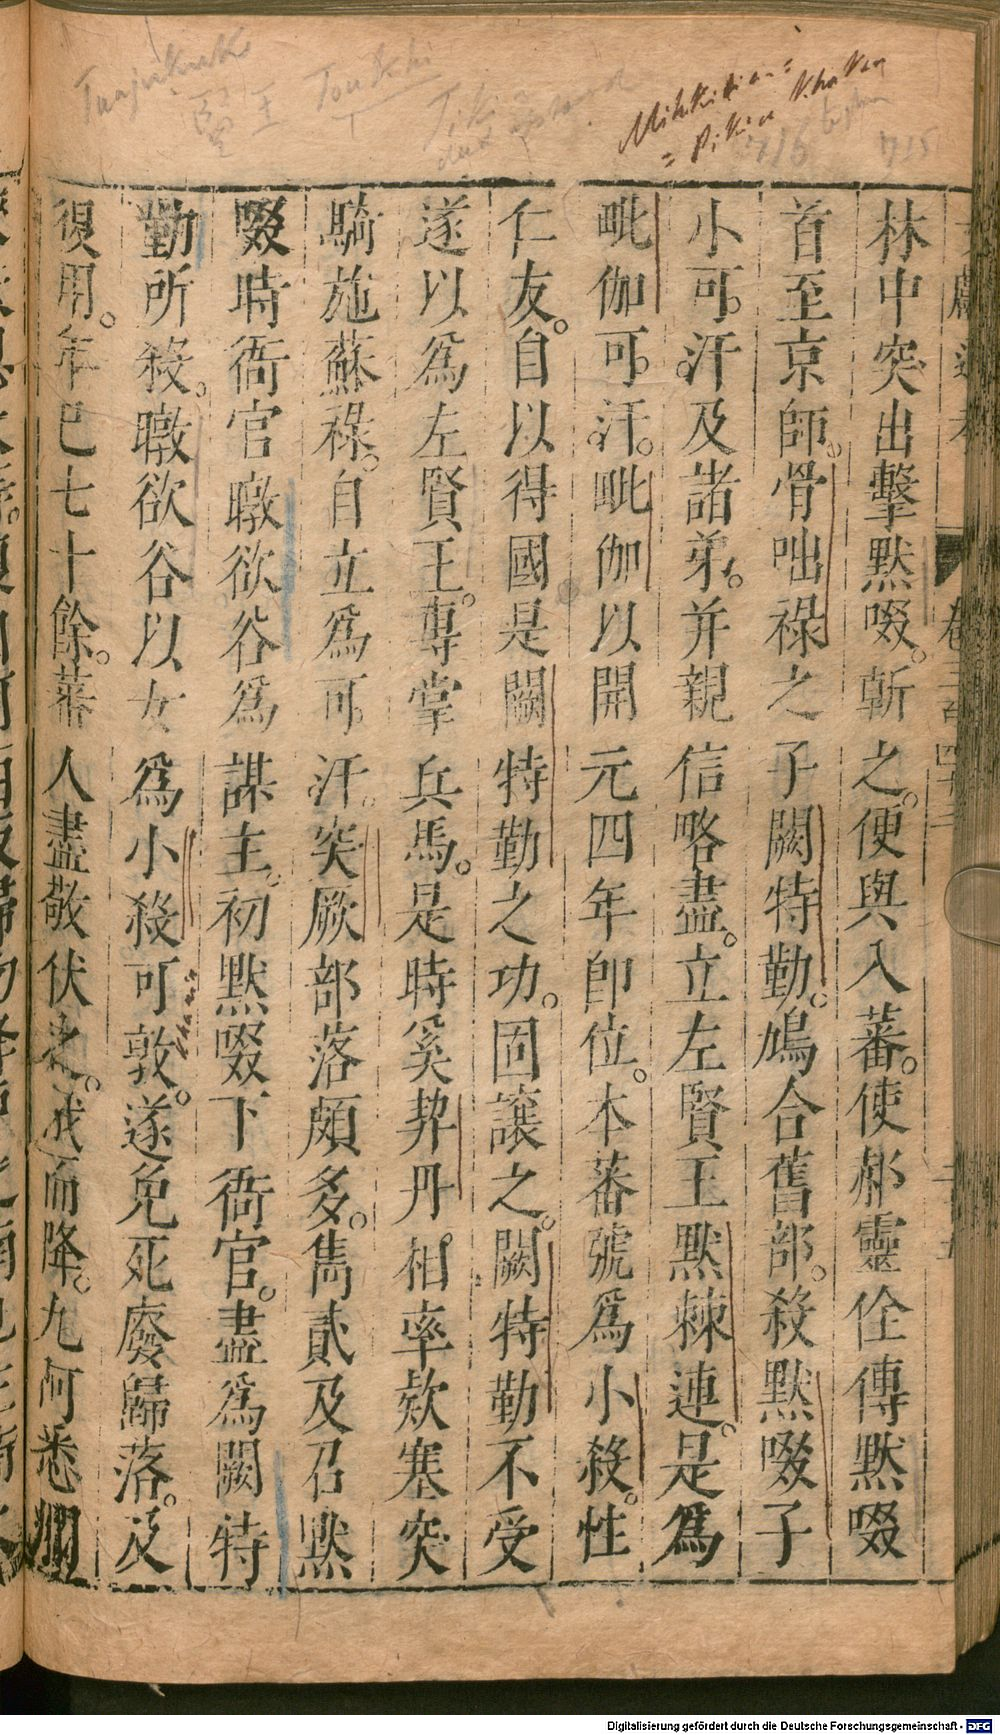 林中突出擊默啜。斬之。便與入蕃。使郝靈佺傳默啜
首至京師。骨咄祿之子闕特勤。鳩合舊部。殺默啜子
小可。汗及諸弟。并親信略盡。立左賢王默棘連。是爲
毗伽可。汗。毗伽以開元四年即位。本蕃號爲小殺。性
仁友。自以得國是闕特勤之功。固讓之。闕特勤不受
遂以爲左賢王。專掌兵馬。是時奚契丹相率欵塞突
騎施蘇祿。自立爲可汗。突厥部落頗多。雋貳及召默
啜時衙官暾欲谷爲謀主。初默啜下衙官。盡爲闕特
勤所殺。暾欲谷以女爲小殺可敦。遂免死廢歸落。及
復用。年巳七十餘。蕃人盡敬伏之。戎而降。九阿悉爛
賢王
Tonjukuk
Mikkitian =
= Pikia Khakan
716
715
Digitalisierung gefördert durch die Deutsche Forschungsgemeinschaft - DFG